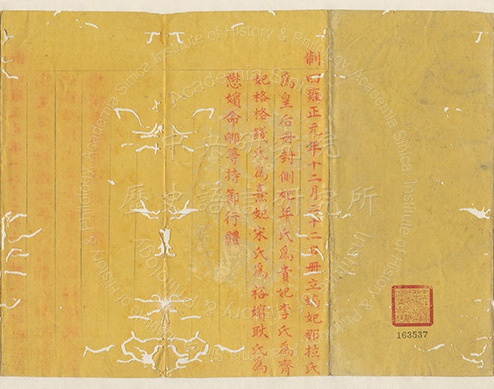 制曰雍正元年十二月二十二日冊立嫡妃那拉氏
爲皇后冊封側妃年氏爲貴妃李氏爲齊
妃格格錢氏爲熹妃宋氏爲裕嬪耿氏爲
懋嬪命卿等持節行禮
163537
中央研究院
歷史語言研究所
Institute of History & Philology, Academia Sinica